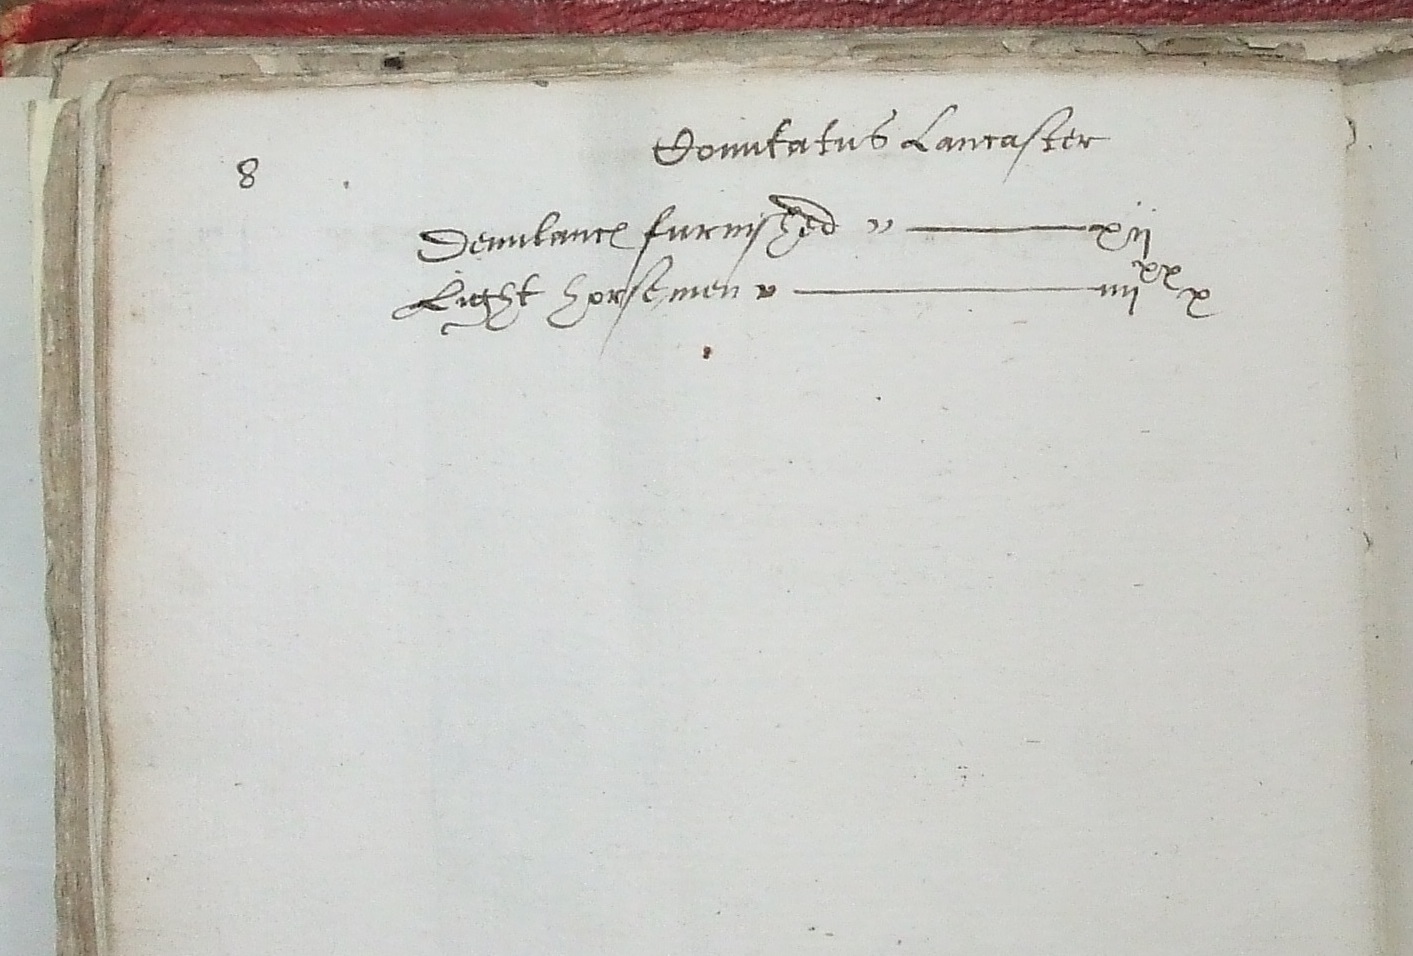 Comitatus Lancaster
8
Demilances furnished — xij
Light horsemen — iiij xx x